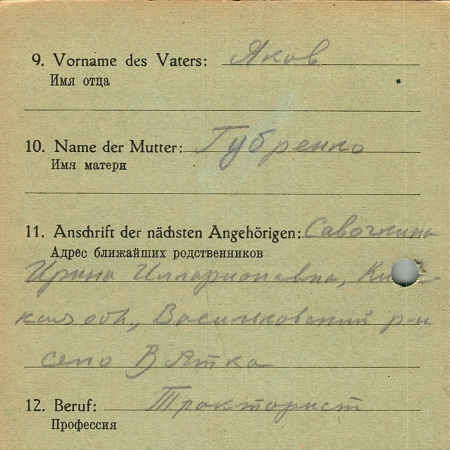 9. Vorname des Vaters: Яков
Имя отца
10. Name der Mutter: Губренко
Имя матери
11. Anschrift der nächsten Angehörigen: Савочкина
Адрес ближайших родственников
Ирина Илларионовна,
обл, Васильковский р-н
село Вятка
12. Beruf: Тракторист
Профессия